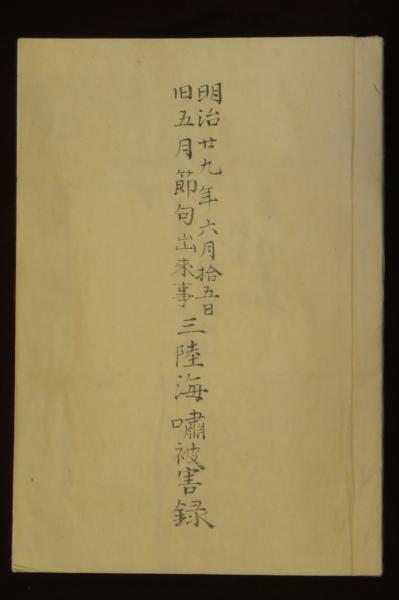 明治廿九年六月拾五日
旧五月節句出来事
三陸海嘯被害録